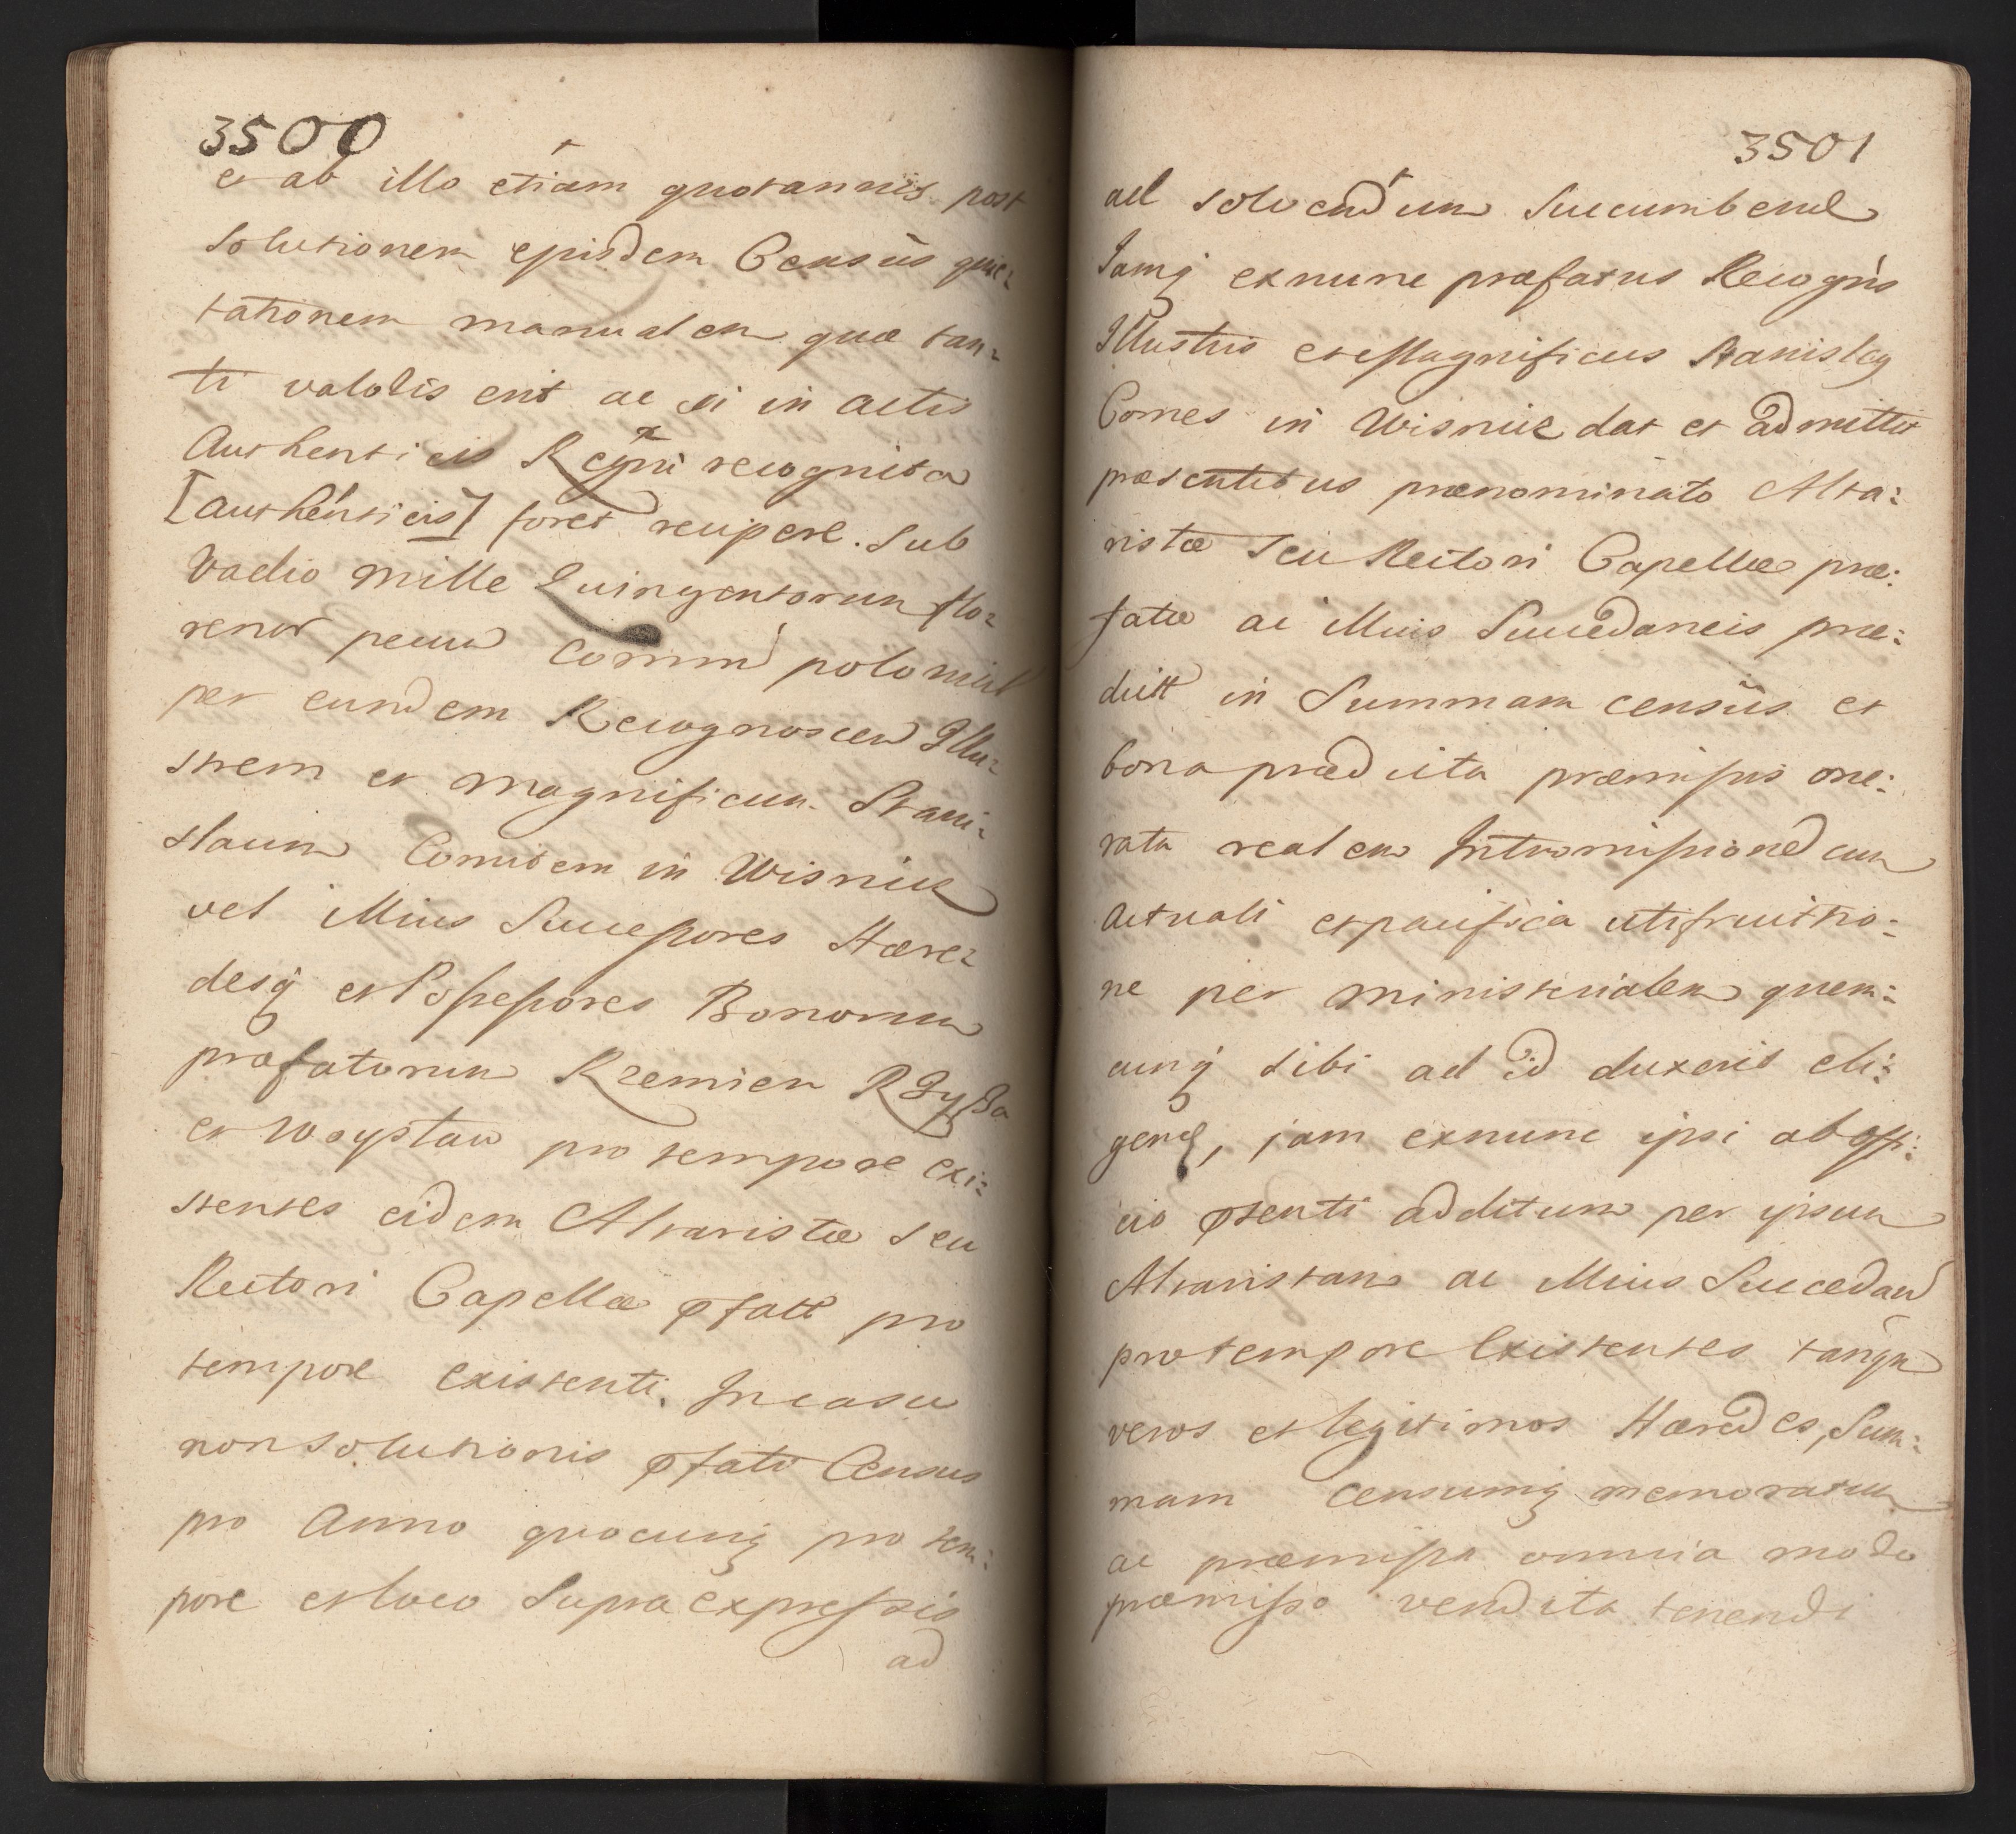 3500
et ab illo etiam quotannis post
solutionem ejusdem Censûs quie:
tationem manualem quæ tan:
ti valoris erit ac si in actis
Authenticis Regni recognita
[authenticis] foret recipere. Sub
Vadio mille Quingentorum flo:
renor pecun Commu polonical
per eundem Recognoscen Illu:
strem et magnificum Stani:
slaum Comitem in Wisnicz
vel illius Successores Hære:
desq et Possessores Bonorum
præfatorum Krzemien
et pro tempore exi:
stentes eidem Altaristæ seu
Rectori Capellæ pfatæ pro
tempore existenti. In casu
non solutionis pfati Census
pro Anno quocunq pro tem:
pore et loco supra expressis
ad
3501
ad solvendum succumbend
Jamq exnunc præfatus Recogns
Illustris et Magnificus Stanislaq
Comes in Wisnicz dat et admittit
præsentibus prænominato Alta:
ristæ seu Rectori Capellæ præ:
fatæ ac illius Succedaneis præ:
dictt in Summam censûs et
bona prædicta præmissis one:
rata realem Intromissioned cum
actuali et pacifica utifruitio:
ne per ministerialem quem:
cunq sibi ad id duxerit eli:
gend, jam exnunc ipsi ab offi:
cio pсenti additum per ipsum
Altaristam ac illius Succedan
pro tempore Existentes tanqu
veros et legitimos Hæredes, Sum:
mam censumq memoratum
ac præmissa omnia modo
præmisso vendita tenendi